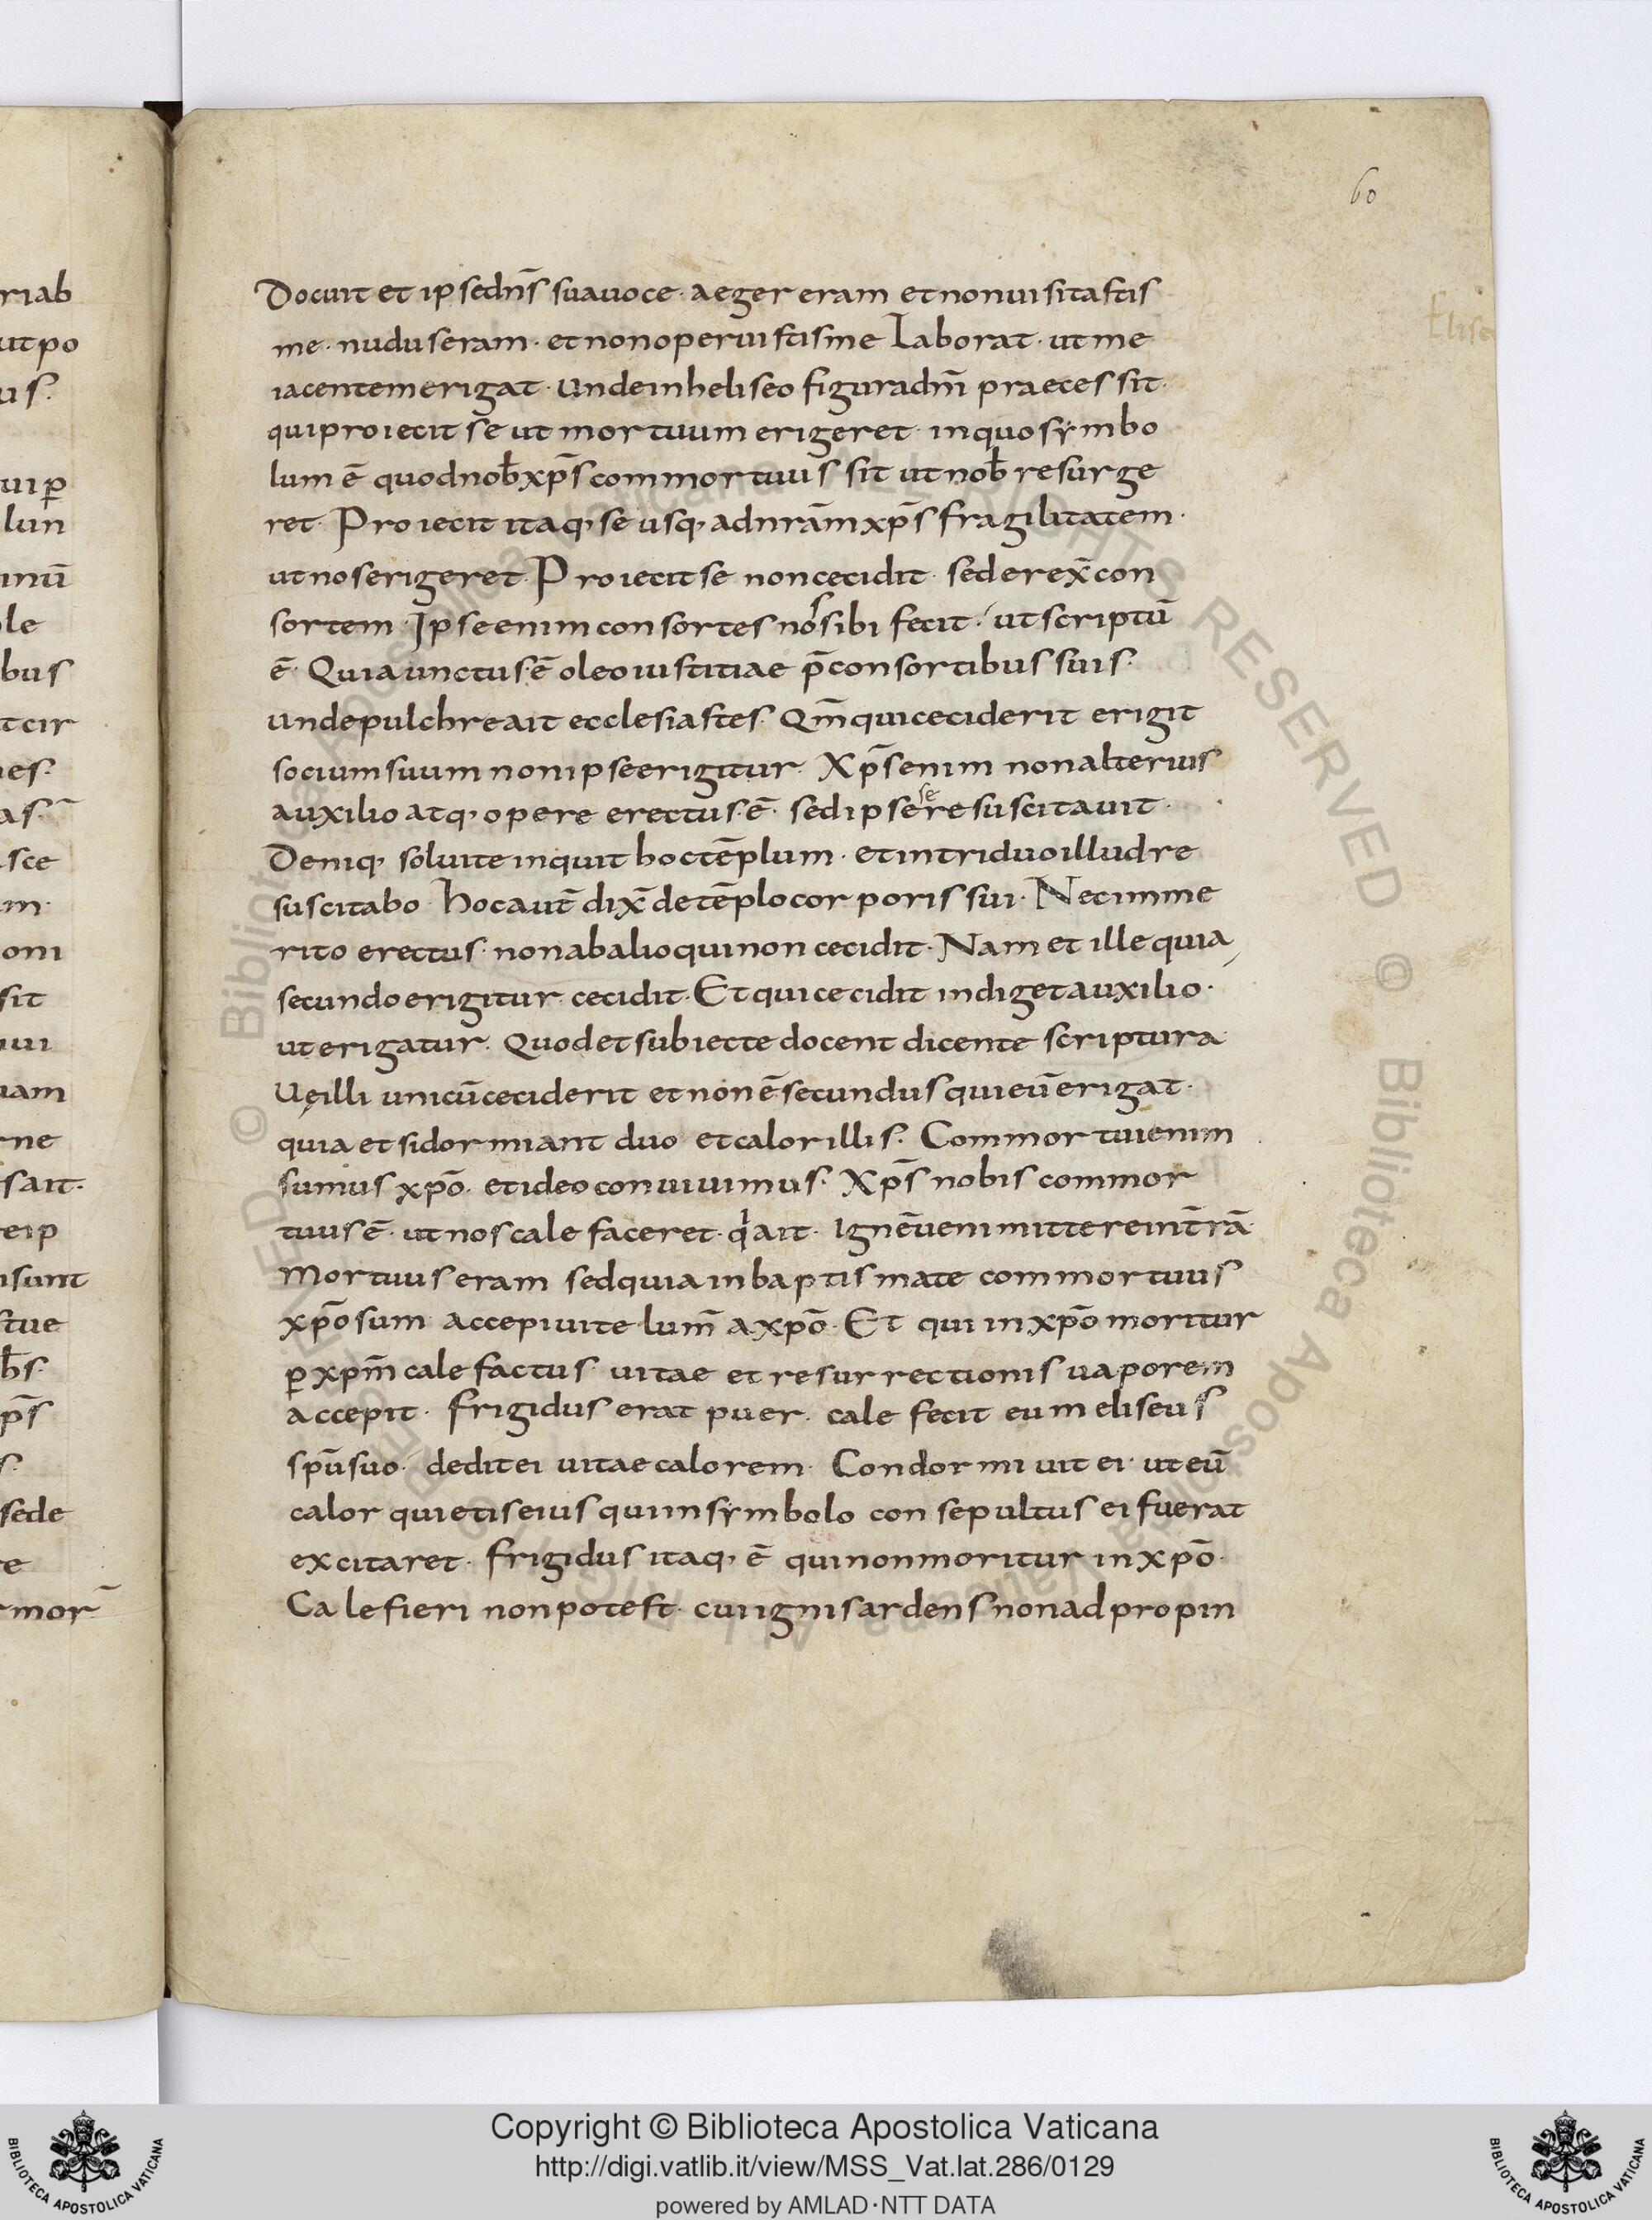 riab
ut po
us.
ui ꝑ
lun
inū
le
bus
t cir
es.
as.
sce
m.
oni
sit
uui
uam
rne
s ait.
e ip
sunt
tue
b̄s.
p̄s
s.
sede
re
mor̄
60
Elise
Docuit et ipse dn̄s sua uoce· aeger eram et non uisitastis
me· nudus eram· et non operuistis me Laborat· ut me
iacentem erigat· unde in heliseo figura dn̄i praecessit·
qui proiecit se ut mortuum erigeret· in quo symbo
lum ē quod nob̄ xp̄s commortuus sit ut nob̄ resurge
ret· Proiecit itaq, se usq, ad nr̄am xp̄s fragilitatem·
ut nos erigeret· Proiecit se non cecidit· sed erex̄ con
sortem· Ipse enim consortes nos sibi fecit· ut scriptū
ē· Quia unctus ē oleo iustitiae p̄ consortibus suis·
unde pulchre ait ecclesiastes· Qm̄ qui ceciderit erigit
socium suum non ipse erigitur· Xp̄s enim non alterius
auxilio atq, opere erectus ē· sed ipse se resuscitauit·
Deniq, soluite inquit hoc tēplum· et in triduo illud re
suscitabo· hoc aut̄ dix̄ de tēplo corporis sui· Nec imme
rito erectus· non ab alio qui non cecidit· Nam et ille quia
secundo erigitur· cecidit· Et qui cecidit indiget auxilio·
ut erigatur· Quod et subiecte docent dicente scriptura·
Uę illi uni cū ceciderit et non ē secundus qui eū erigat·
quia et si dormiant duo et calor illis· Commortui enim
sumus xp̄o· et ideo conuiuimus· Xp̄s nobis commor
tuus ē· ut nos calefaceret· qi ait· Ignē ueni mittere in t̄rā·
Mortuus eram sed quia in baptismate commortuus
xp̄o sum accepi uite lum̄ a xp̄o· Et qui in xp̄o moritur
ꝑ xpm̄ calefactus uitae et resurrectionis uaporem
accepit· frigidus erat puer· calefecit eum eliseus
spū suo· dedit ei uitae calorem· Condormiuit ei· ut eū
calor quietis eius qui in symbolo consepultus ei fuerat
excitaret· frigidus itaq, ē qui non moritur in xp̄o·
Calefieri non potest· cui ignis ardens non adpropin
© Biblioteca Apostolica Vaticana ALL RIGHTS RESERVED
Copyright © Biblioteca Apostolica Vaticana
http://digi.vatlib.it/view/MSS_Vat.lat.286/0129
powered by AMLAD·NTT DATA
BIBLIOTECA APOSTOLICA VATICANA
BIBLIOTECA APOSTOLICA VATICANA